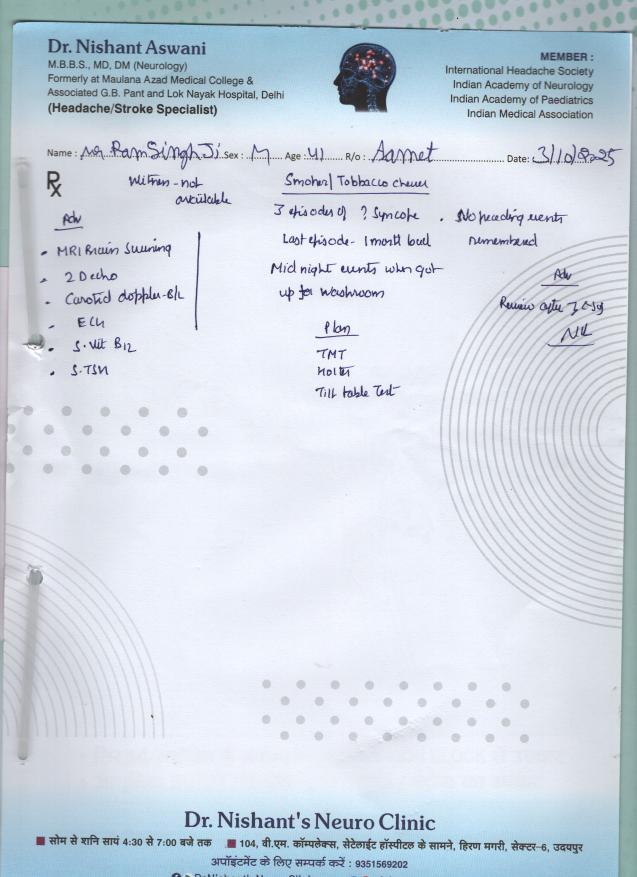 Dr. Nishant Aswani
M.B.B.S., MD, DM (Neurology)
Formerly at Maulana Azad Medical College &
Associated G.B. Pant and Lok Nayak Hospital, Delhi
(Headache/Stroke Specialist)
MEMBER :
International Headache Society
Indian Academy of Neurology
Indian Academy of Paediatrics
Indian Medical Association
Name : Mr Ram Singh Ji Sex : M Age : 41 R/o : Aamet Date: 3/10/2025
Rx
Witness - not
available
Adv
MRI Brain Screening
2D echo
Carotid doppler - B/L
ECG
S. Vit B12
S. TSH
Smoker / Tobbacco chewer
3 episodes of ? Syncope
Last episode - 1 month back
Mid night events when got
up for washroom
Plan
TMT
Holter
Tilt table Test
No preceding events
remembered
Adv
Review after 7 days
Dr. Nishant's Neuro Clinic
सोम से शनि सायं 4:30 से 7:00 बजे तक 104, वी.एम. कॉम्पलेक्स, सेटेलाईट हॉस्पीटल के सामने, हिरण मगरी, सेक्टर-6, उदयपुर
अपॉइंटमेंट के लिए सम्पर्क करें : 9351569202